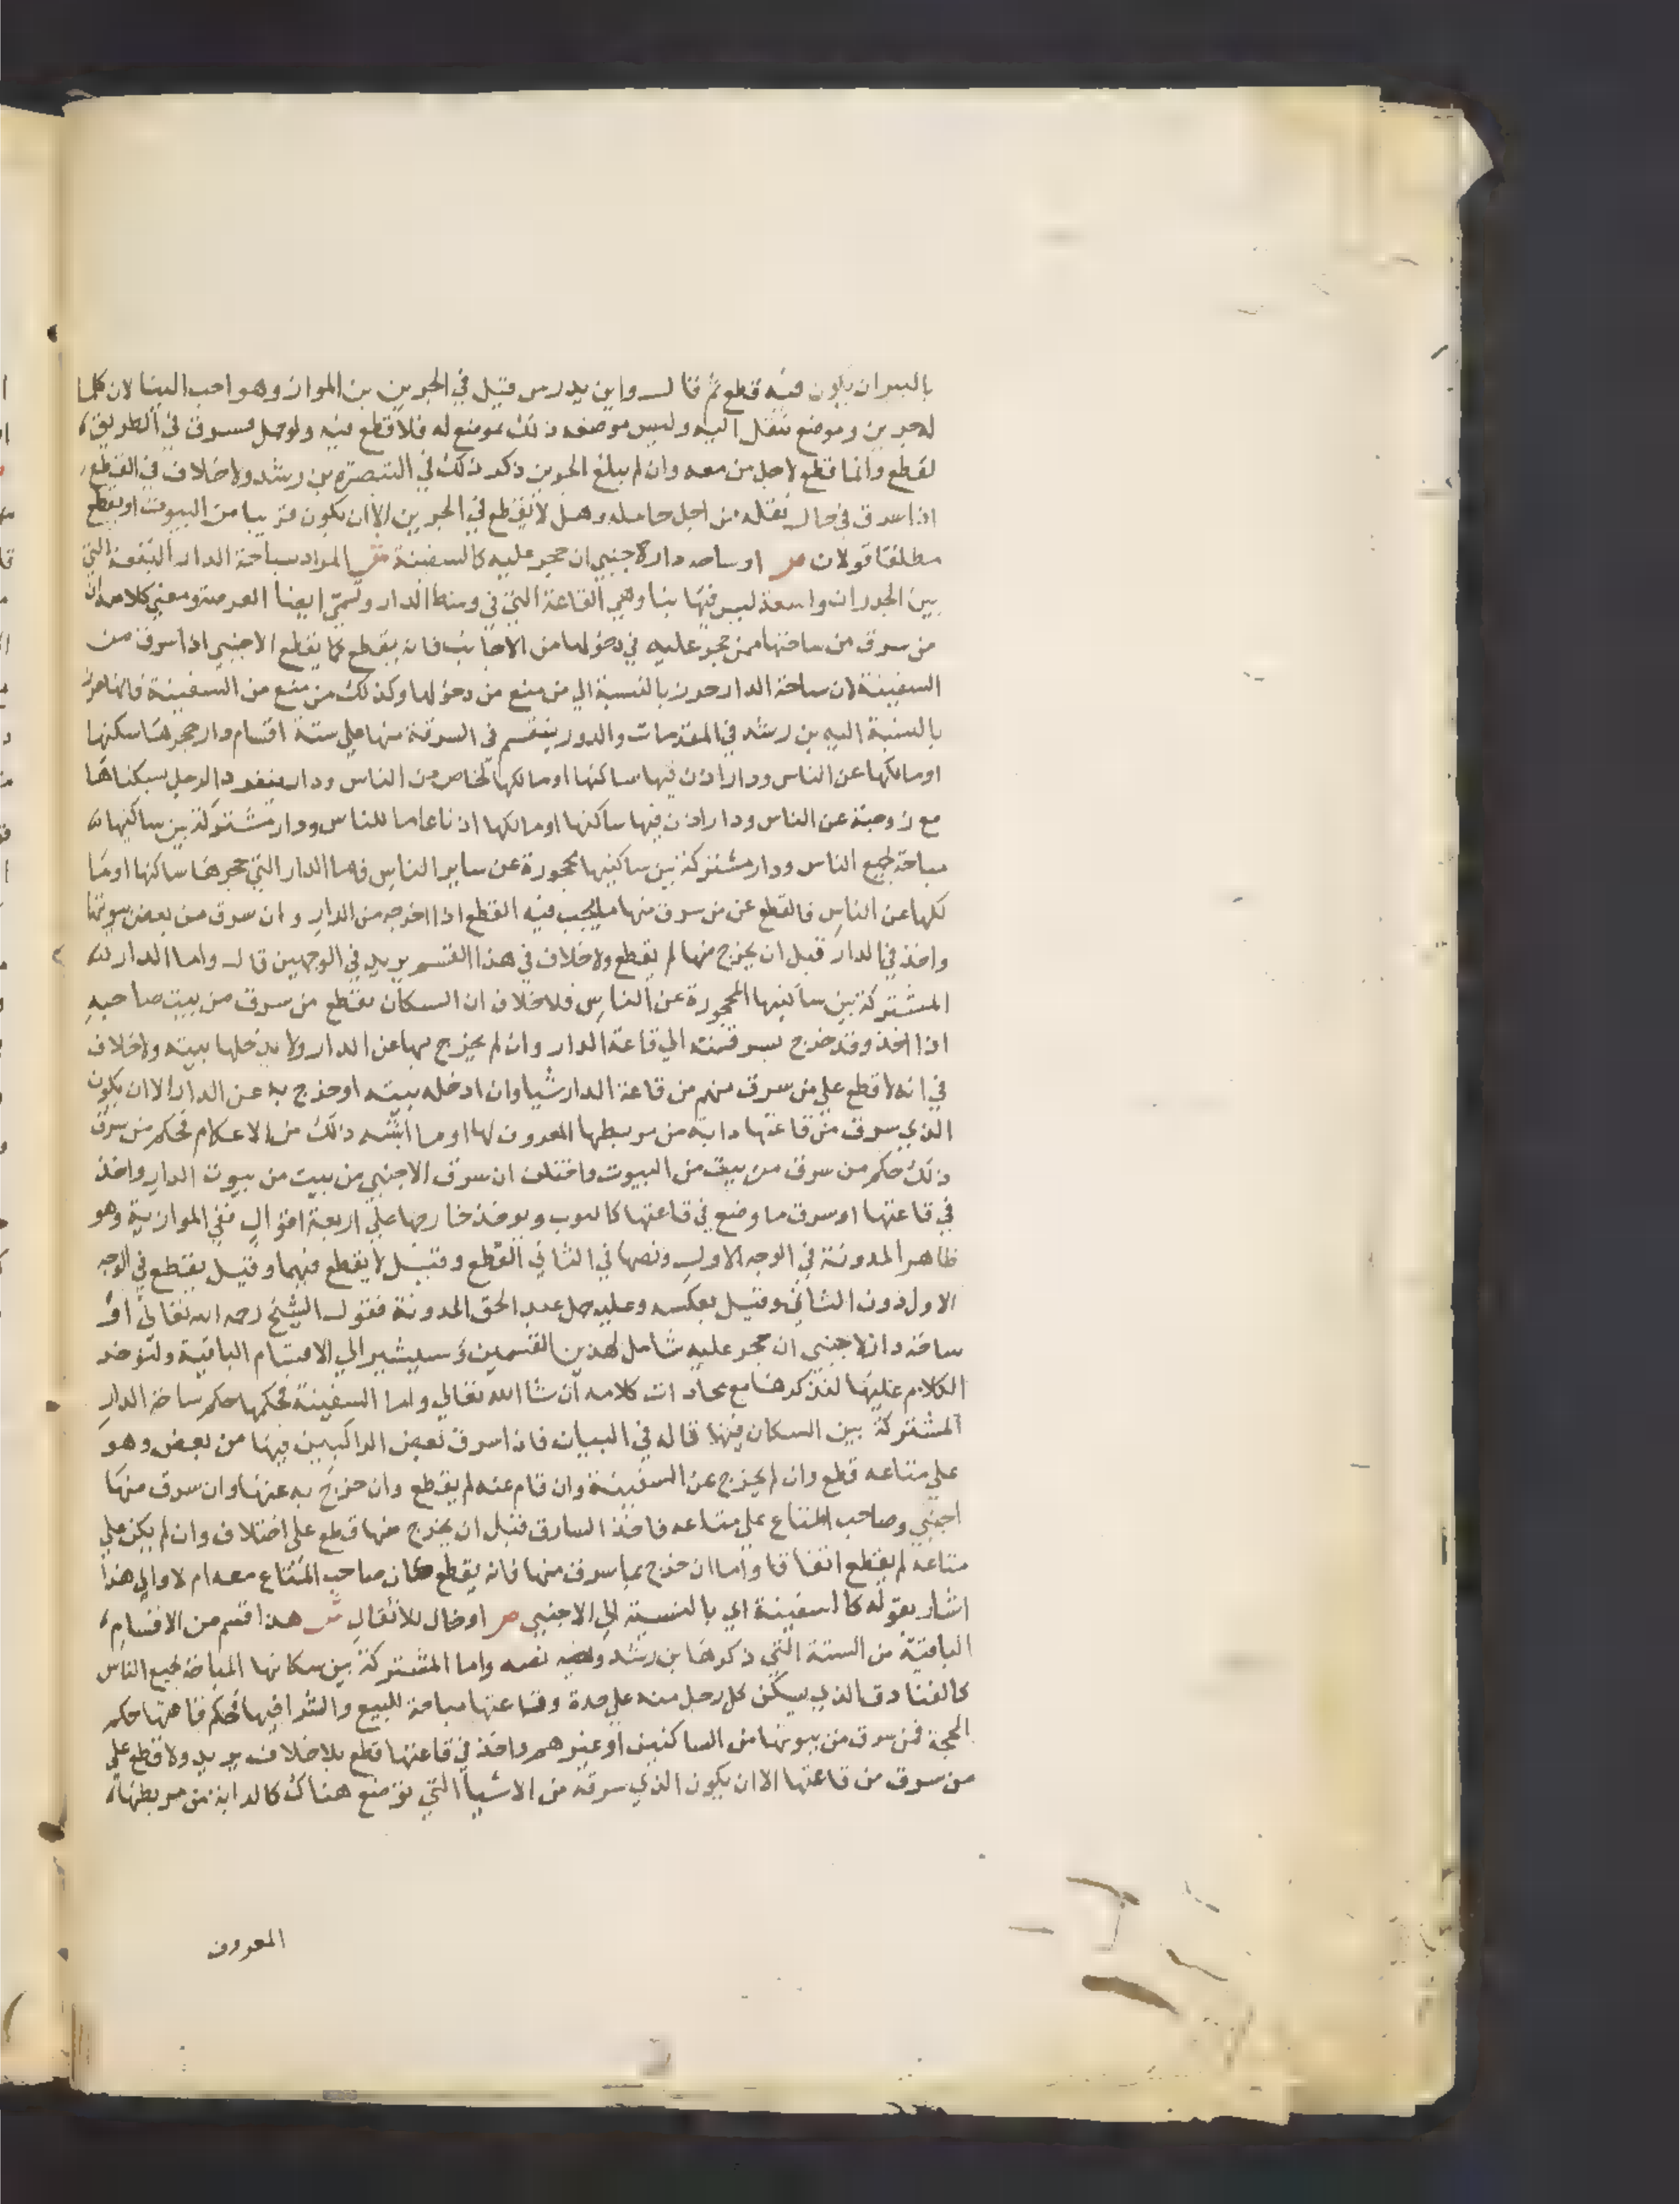 باليسران يكون فيه قطع ثم قال واين يدرس قيل في الجرين بن المواز وهو احب الينا لان كلما
له جرين وموضع ينقل اليه وليس موضعه ذلك بموضع له فلا قطع فيه ولو حمل فسرق في الطريق
لقطع وانما قطع لاجل من معه وان لم يبلغ الجرين ذكر ذلك في التبصرة بن رشد ولا خلاف في القطع
اذا سرق في حال نقله من اجل حامله وهل لا يقطع في الجرين الا ان يكون قريبا من البيوت او يقطع
مطلقا قولان ص او ساحه دار لاجنبي ان حجر عليه كالسفينة ش المراد بساحة الدار البقعة التي
بين الجدران واسعة ليس فيها بنا وهي القاعة التي في وسط الدار وتسمي ايضا العرصة ومعني كلامه ان
من سرق من ساحتها ممن حجر عليه في دخولها من الاجانب فانه يقطع كما يقطع الاجنبي اذا سرق من
السفينة لان ساحة الدار حرز بالنسبة الي من منع من دخولها وكذلك من منع من السفينة فانها حرز
بالنسبة اليه بن رشد في المقدمات والدور ينقسم في السرقة منها علي ستة اقسام دار حجرها ساكنها
او مالكها عن الناس ودار اذن فيها ساكنها او مالكها لخاص من الناس ودار ينفرد الرجل بسكناها
مع زوجته عن الناس ودار اذن فيها ساكنها او مالكها اذنا عاما للناس ودار مشتركة بين ساكنيها
مباحة لجميع الناس ودار مشتركة بين ساكنيها محجورة عن ساير الناس فاما الدار التي حجرها ساكنها او ما
لكها عن الناس فالقطع عن من سرق منها ما يجب فيه القطع اذا اخرجه من الدار وان سرق من بعض بيوتها
واخذ في الدار قبل ان يخرج منها لم يقطع ولا خلاف في هذا القسم يريد في الوجهين قال واما الدار
المشتركة بين ساكنيها المحجورة عن الناس فلا خلاف ان السكان يقطع من سرق من بيت صاحبه
اذا اخذ وقد خرج بسرقته الي قاعة الدار وان لم يخرج بها عن الدار ولا يدخلها بيته ولا خلاف
في انه لا قطع علي من سرق منهم من قاعة الدار شيا وان ادخله بيته او خرج به عن الدار الا ان يكون
الذي سرق من قاعتها دابة من مربطها المعروف لها او ما اشبه ذلك من الاعكام فحكم من سرق
ذلك حكم من سرق من بيت من البيوت واختلف ان سرق الاجنبي من بيت من بيوت الدار واخذ
في قاعتها او سرق ما وضع في قاعتها كالثوب ويوخذ خارجها علي اربعة اقوال ففي الموازية وهو
ظاهر المدونة في الوجه الاول ونصها في الثاني القطع وقيل لا يقطع فيهما وقيل يقطع في الوجه
الاول دون الثاني وقيل بعكسه وعليه حمل عبد الحق المدونة فقول الشيخ رحمه الله تعالي او
ساحة دار لاجنبي ان حجر عليه شامل لهذين القسمين وسيشير الي الاقسام الباقية ولنوخر
الكلام عليها لنذكرها مع محاذات كلامه ان شا الله تعالي واما السفينة فحكمها حكم ساحة الدار
المشتركة بين السكان فيها قاله في البيان فان سرق بعض الراكبين فيها من بعض وهو
علي متاعه قطع وان لم يخرج عن السفينة وان قام عنه لم يقطع وان خرج به عنها وان سرق منها
اجنبي وصاحب المتاع علي متاعه فاخذ السارق قبل ان يخرج منها قطع علي اختلاف وان لم يكن علي
متاعه لم يقطع اتفاقا واما ان خرج بما سرق منها فانه يقطع كان صاحب المتاع معه ام لا والي هذا
اشار بقوله كالسفينة اي بالنسبة الي الاجنبي ص او خان للاثقال ش هذا قسم من الاقسام
الباقية من الستة التي ذكرها بن رشد نصه واما المشتركة بين سكانها المباحة لجميع الناس
كالفنادق الذي يسكن كل رجل منه علي حدة وقاعتها مباحة للبيع والشرا فيها فحكم قاعتها حكم
المحجة فمن سرق من بيوتها من الساكنين او غيرهم واخذ في قاعتها قطع بلا خلاف يريد ولا قطع علي
من سرق من قاعتها الا ان يكون الذي سرقه من الاشيا التي توضع هناك كالدابة من مربطها
المعروف